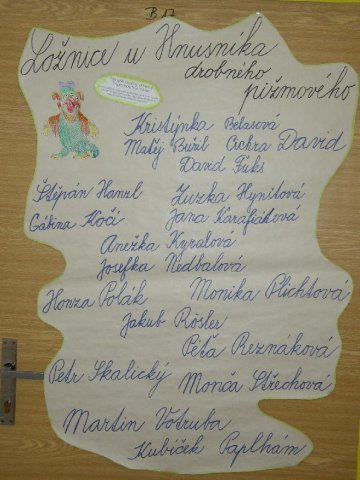 B 17
Ložnice u Hnusníka
drobného
pižmového
Kristýnka Belasová
Matěj Buřil Cechra David
David Fuks
Štěpán Hanzl Zuzka Hynitová
Gábina Kočí Jana Karafiátová
Anežka Kyralová
Josefka Nedbalová
Honza Polák Monika Plichtová
Jakub Rösler
Péťa Řeznáková
Petr Skalický Monča Střechová
Martin Votruba
Kubíček Paplhám